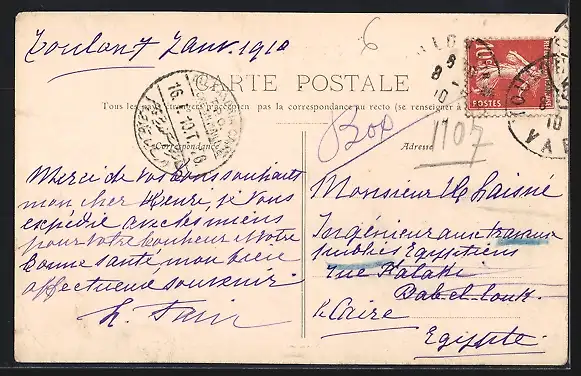 Toulon 7 Janv. 1910
6
CARTE POSTALE
Tous les pays étrangers n'acceptent pas la correspondance au recto (se renseigner à
Correspondance
Adresse
Box
1107
10c
POSTES
VAR
16. I. 10. T
Merci de vos bons souhaits
mon cher Henri, je vous
expédie avec les miens
pour votre bonheur & votre
bonne santé, mon bien
affectueux souvenir.
Monsieur H. Laisné
Ingénieur aux travaux
publics Egyptiens
rue
Bab el Louk.
le Caire
Egypte